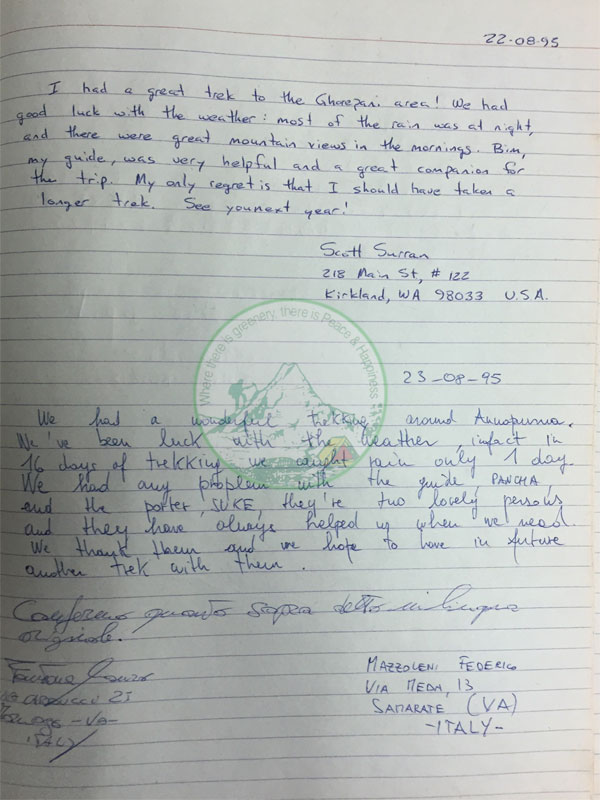 22-08-95
I had a great trek to the Ghorepani area! We had
good luck with the weather: most of the rain was at night,
and there were great mountain views in the mornings. Bim,
my guide, was very helpful and a great companion for
the trip. My only regret is that I should have taken a
longer trek. See you next year!
Scott Surran
218 Main St, # 122
Kirkland, WA 98033 U.S.A.
Where there is greenery, there is Peace & Happiness
23-08-95
We had a wonderful trekking around Annapurna.
We've been luck with the weather, infact in
16 days of trekking we caught rain only 1 day.
We had any problem with the guide, PANCHA,
and the porter, SUKE, they're two lovely persons
and they have always helped us when we need.
We thank them and we hope to have in future
another trek with them.
Confermo quanto sopra detto in lingua
originale.
MAZZOLENI FEDERICO
VIA MEDA, 13
SAMARATE (VA)
-ITALY-
-VA-
ITALY